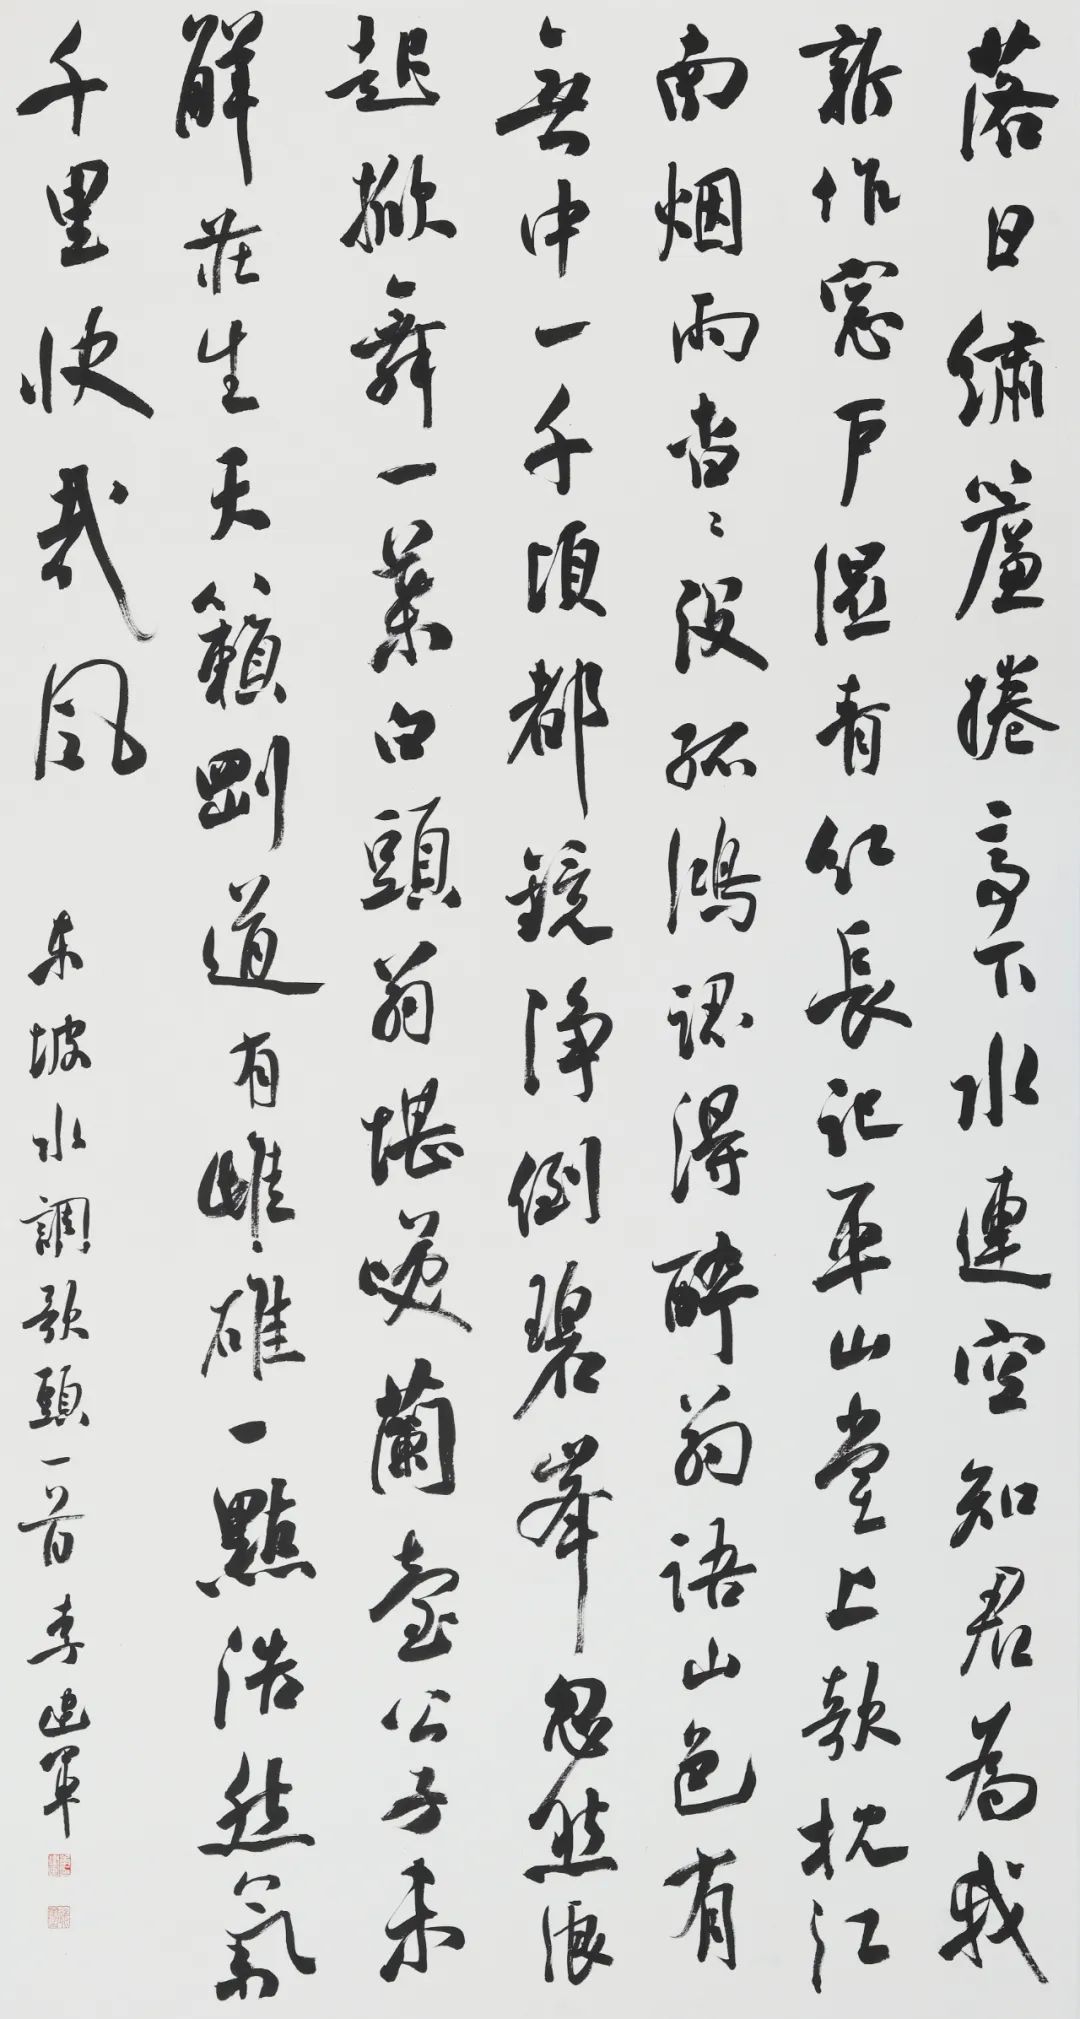 落日繡簾捲亭下水連空知君為我
新作窓戶濕青紅長記平山堂上欹枕江
南烟雨杳〻沒孤鴻認得醉翁語山色有
無中一千頃都鏡淨倒碧峯忽然浪
起掀舞一葉白頭翁堪咲蘭臺公子未
解莊生天籟剛道有雌雄一點浩然氣
千里快哉風
东坡水調歌頭一首李建軍